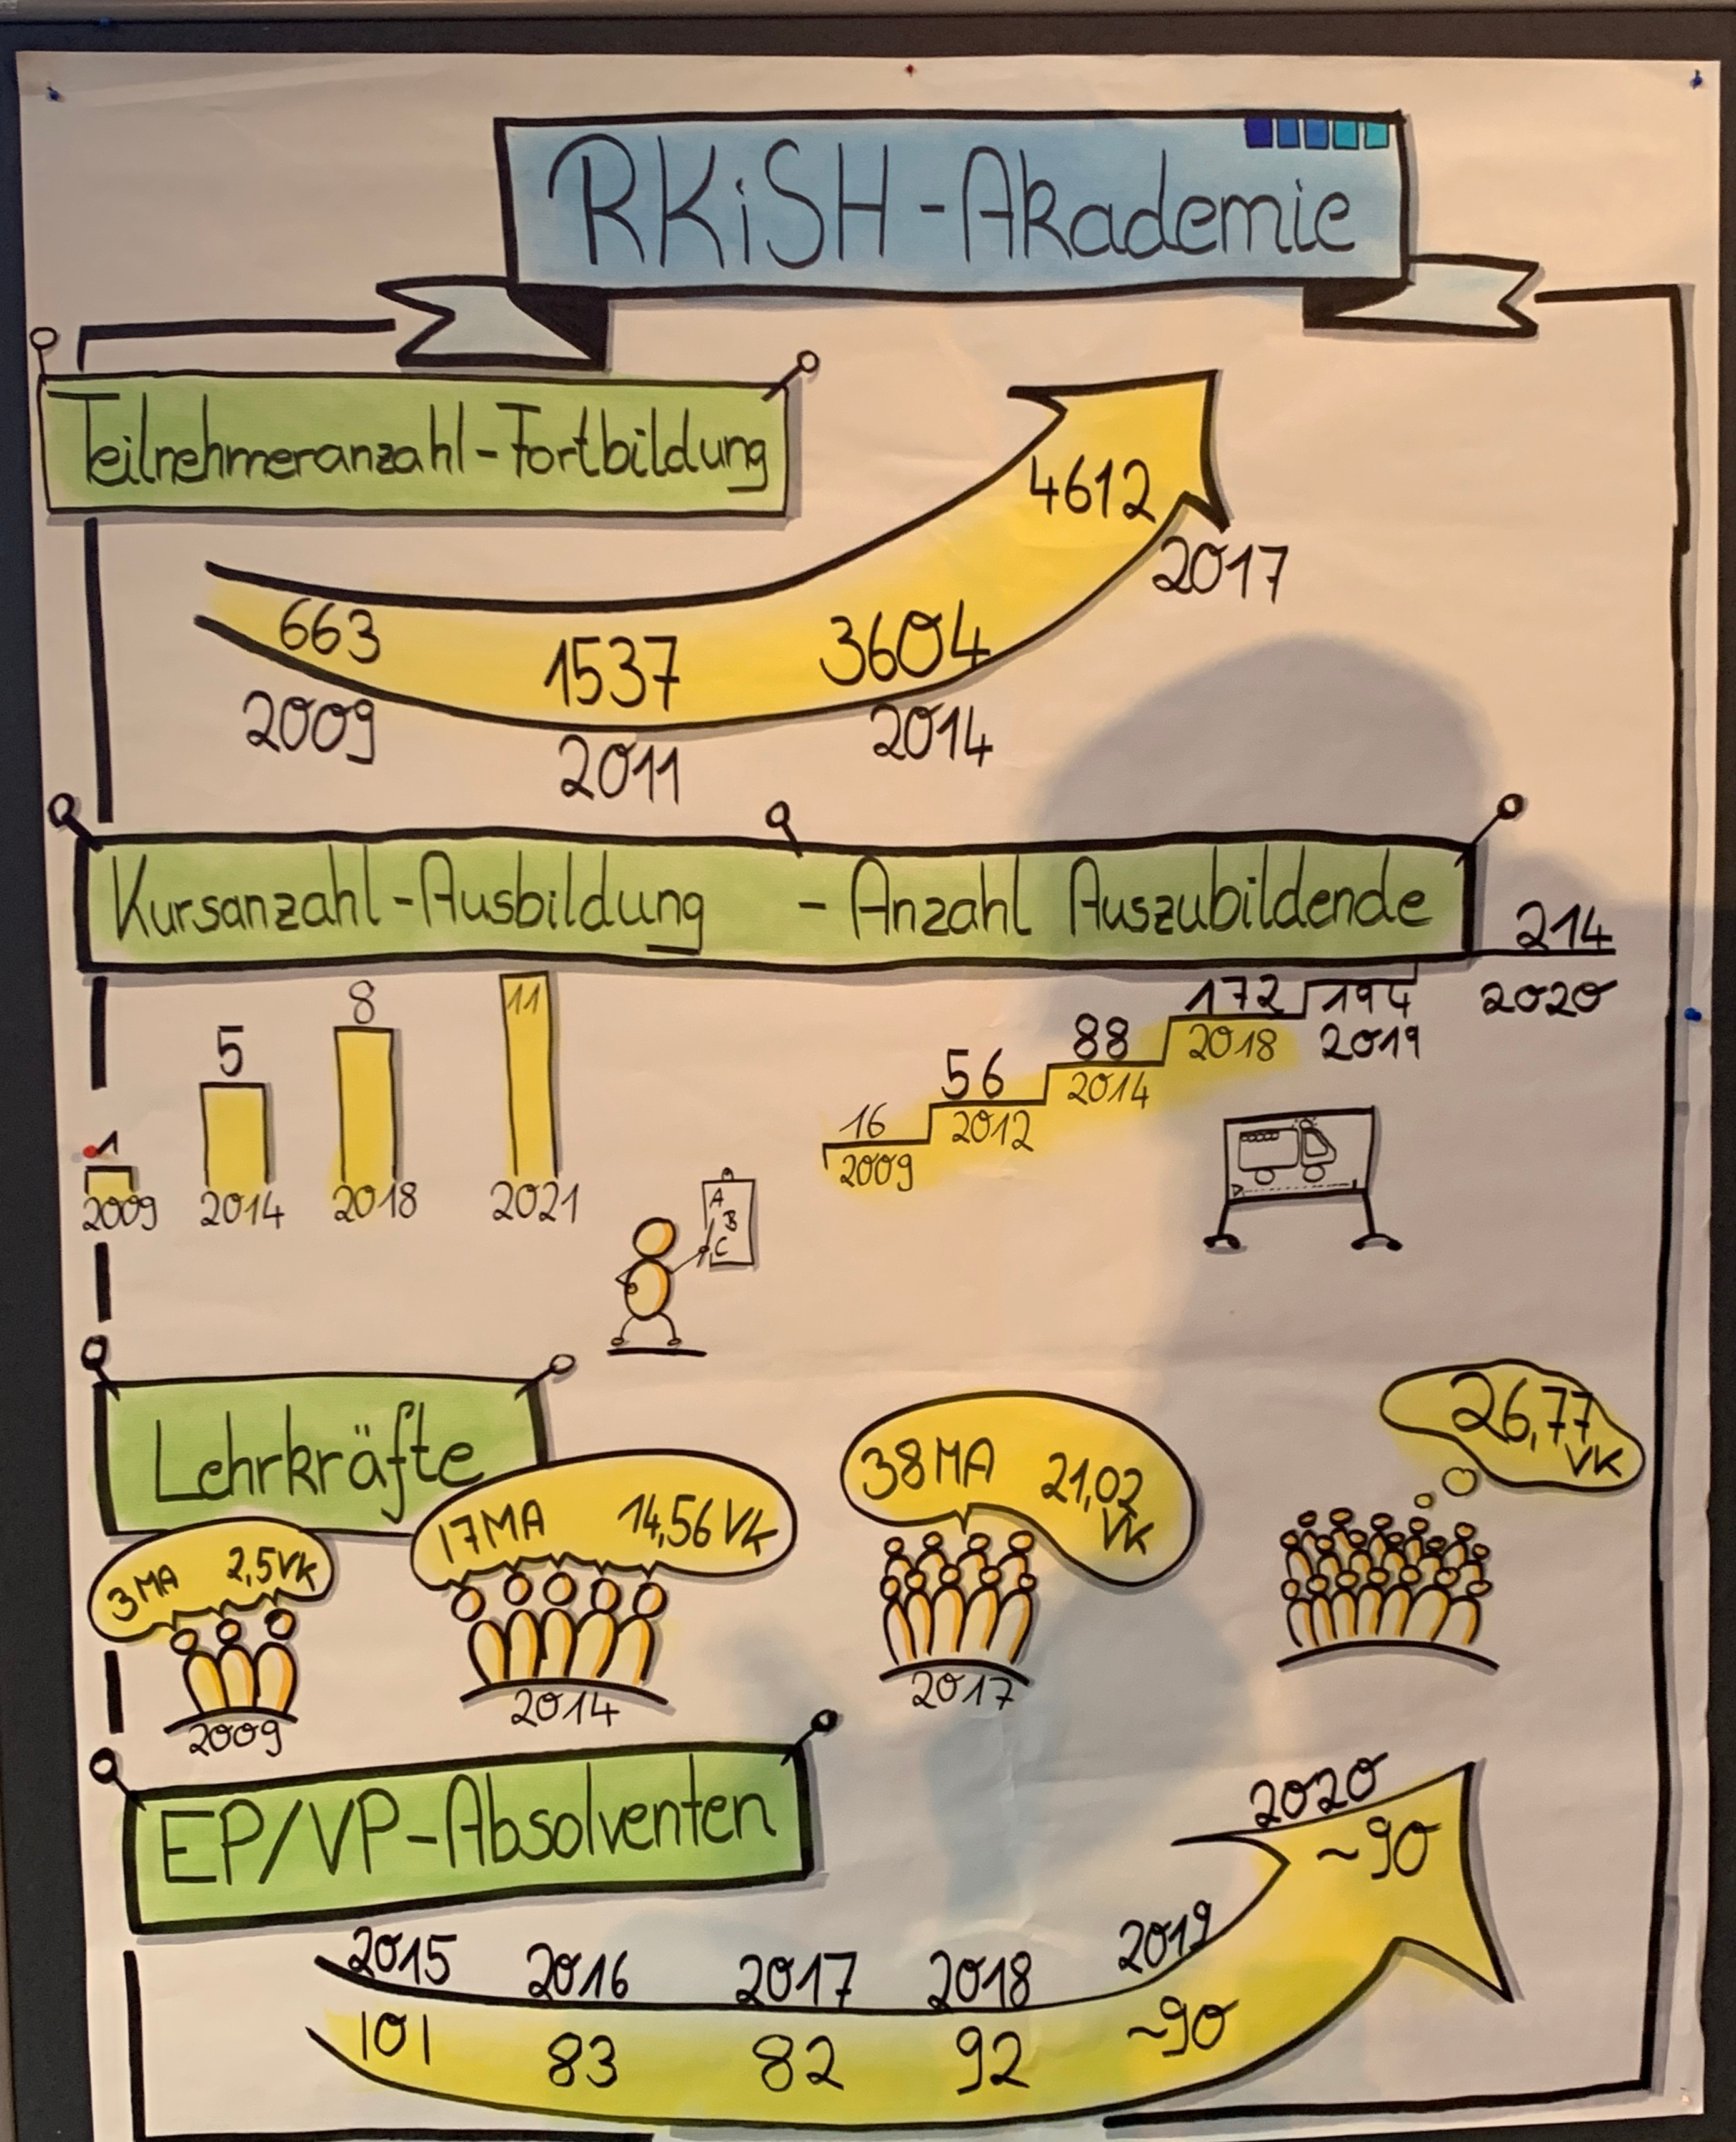 RKiSH-Akademie
Teilnehmeranzahl-Fortbildung
663
2009
1537
2011
3604
2014
4612
2017
Kursanzahl-Ausbildung - Anzahl Auszubildende
1
2009
5
2014
8
2018
11
2021
16
2009
56
2012
88
2014
172
2018
194
2019
214
2020
A
B
C
Lehrkräfte
3 MA 2,5 VK
2009
17 MA 14,56 VK
2014
38 MA 21,02
VK
2017
26,77
VK
EP/VP-Absolventen
2015 2016 2017 2018 2019 2020
101 83 82 92 ~90 ~90